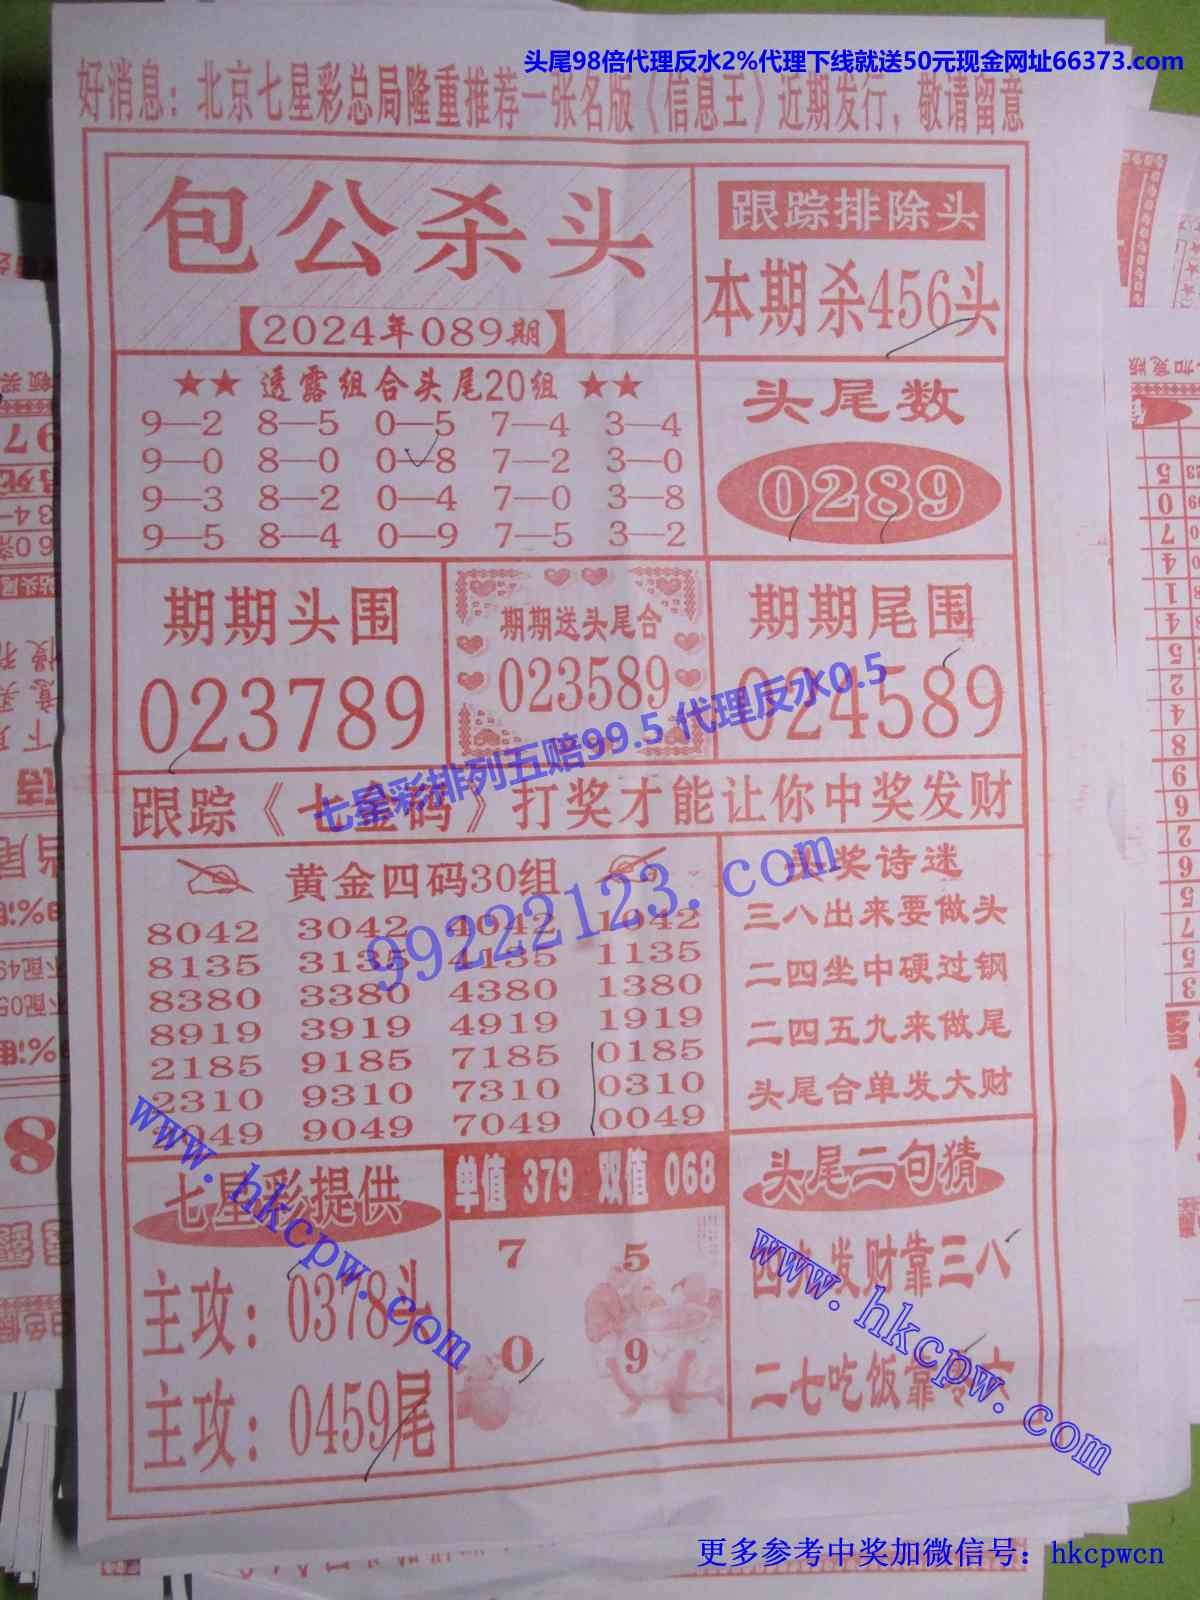 头尾98倍代理反水2%代理下线就送50元现金网址66373.com
好消息：北京七星彩总局隆重推荐一张名版《信息王》近期发行，敬请留意
包公杀头
【2024年089期】
跟踪排除头
本期杀456头
★★ 透露组合头尾20组 ★★
9—2 8—5 0—5 7—4 3—4
9—0 8—0 0—8 7—2 3—0
9—3 8—2 0—4 7—0 3—8
9—5 8—4 0—9 7—5 3—2
头尾数
0289
期期头围
023789
期期送头尾合
023589
期期尾围
024589
七星彩排列五赔99.5 代理反水0.5
跟踪《七金码》打奖才能让你中奖发财
黄金四码30组
8042 3042 4042 1042
8135 3135 4135 1135
8380 3380 4380 1380
8919 3919 4919 1919
2185 9185 7185 0185
2310 9310 7310 0310
049 9049 7049 0049
99222123.com
头奖诗迷
三八出来要做头
二四坐中硬过钢
二四五九来做尾
头尾合单发大财
七星彩提供
主攻：0378头
主攻：0459尾
www.hkcpw.com
单值 379 双值 068
7 5
0 9
头尾二句猜
四九发财靠三八
二七吃饭靠零六
www.hkcpw.com
更多参考中奖加微信号：hkcpwcn